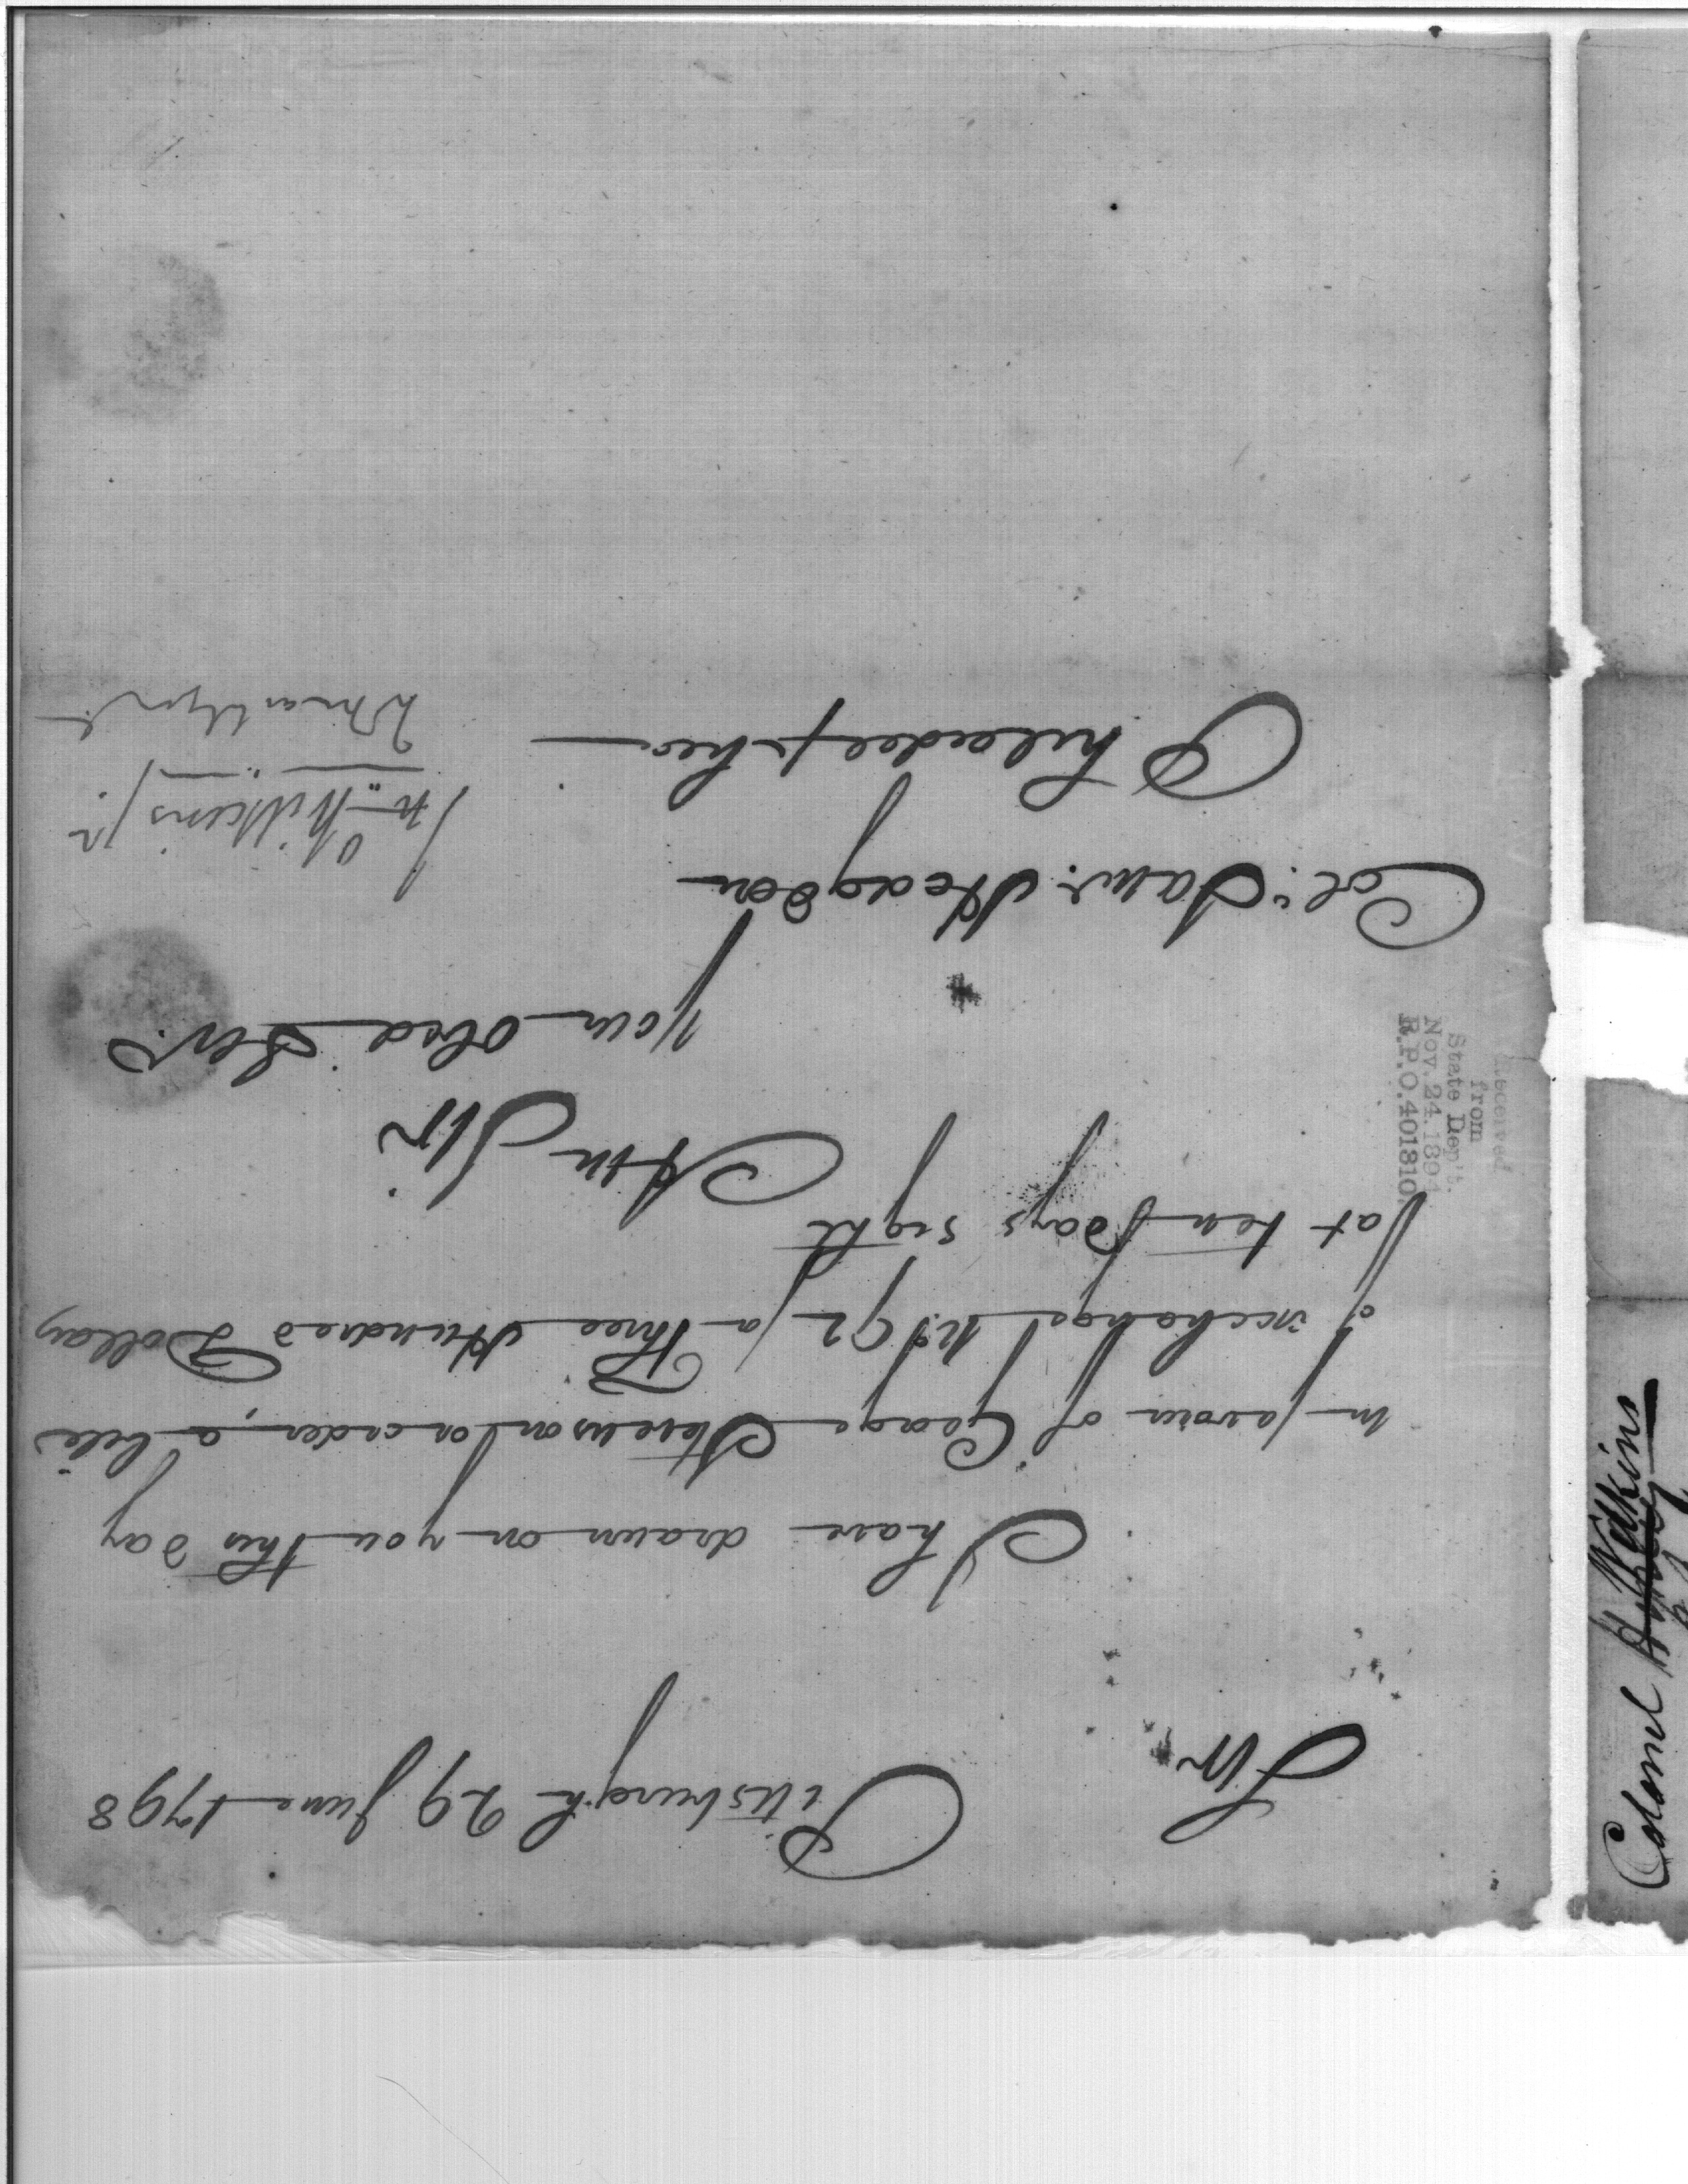 Pittsburgh 29 June 1798
Sir
I have drawn on you this day
in favour of George Stevenson or order, a bill
of exchange No. 92 for Three Hundred Dollars
at ten days sight
I am Sir
Your Obed Ser.
Jno. Wilkins Jr.
Col. Saml. Hodgdon
Philadelphia
Received
from
State Dep't.
Nov. 24. 1894
R. P. O. 401810
Colonel Wilkins